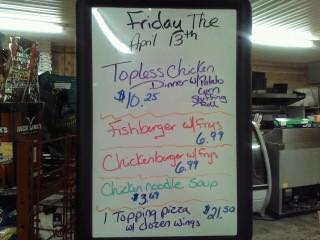 Friday The
April 13th
Topless Chicken
Dinner w/ Potato
Corn
Stuffing
Roll
$10.25
Fishburger w/ Frys
6.99
Chickenburger w/ Frys
6.99
Chicken noodle Soup
$3.69
1 Topping pizza $21.50
w/ dozen wings
JACK LINK'S